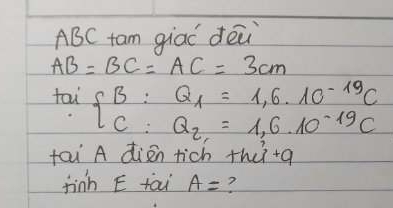 ABC tam giác đều
AB = BC = AC = 3cm
tại { B : Q₁ = 1,6.10⁻¹⁹C
C : Q₂ = 1,6.10⁻¹⁹C
tại A điện tích thử +q
tính E tại A = ?